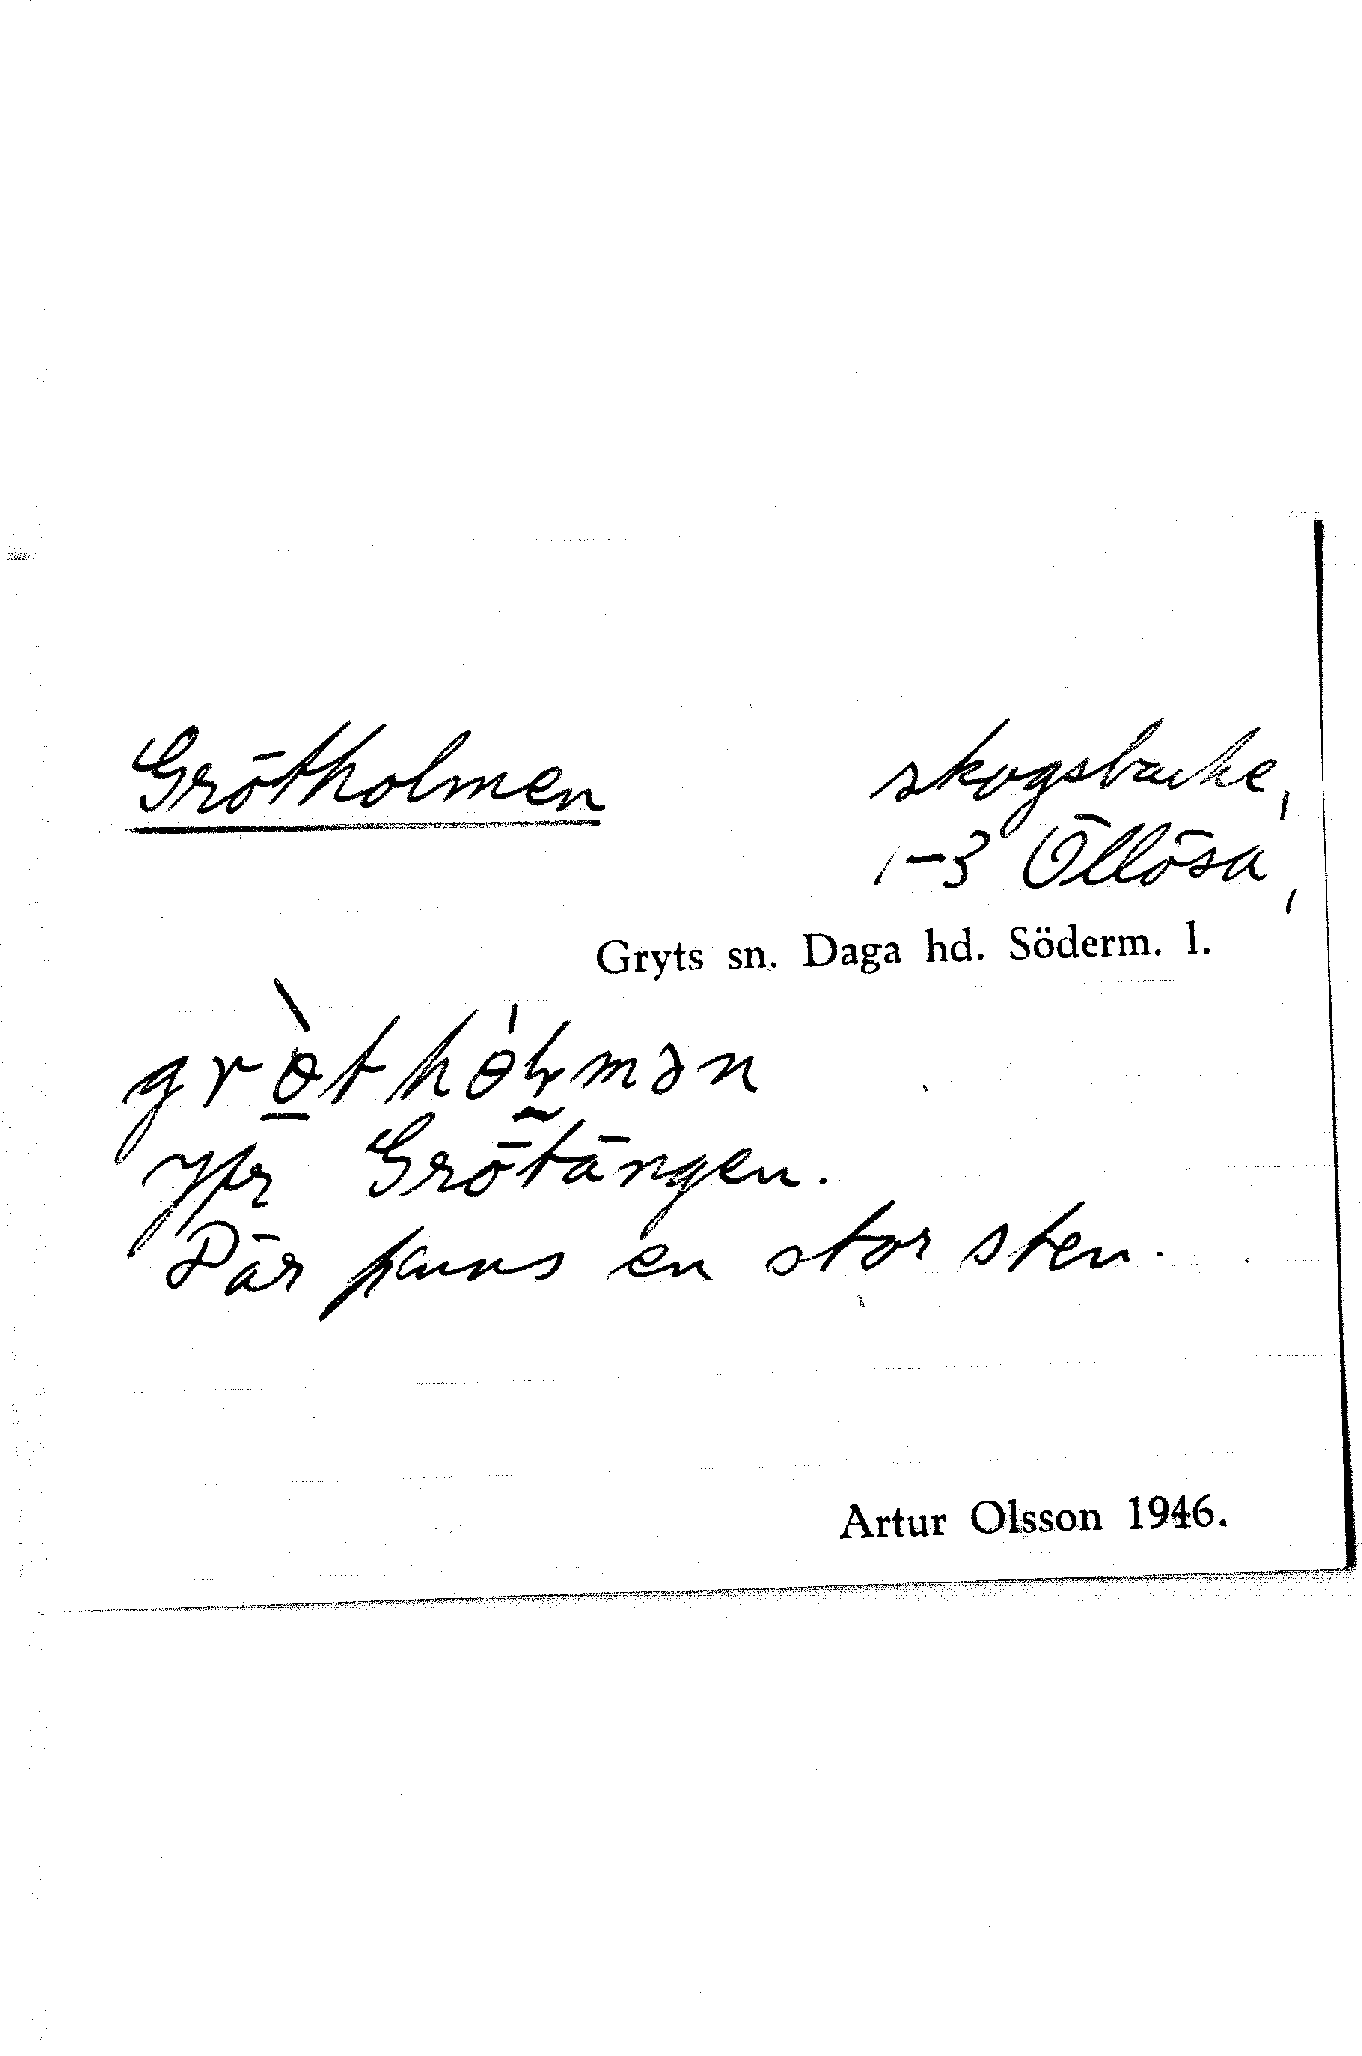 Grötholmen skogsbacke,
1-3 Öllösa,
Gryts sn. Daga hd. Söderm. l.
Jfr Grötängen.
Där fanns en stor sten.
Artur Olsson 1946.